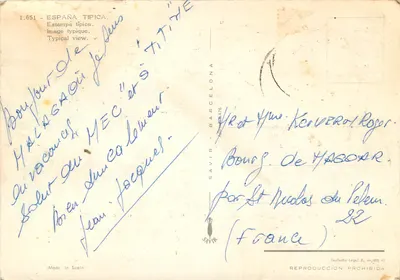 1.051 - ESPAÑA TIPICA
Estampa típica.
Image typique.
Typical view.
Bonjour de
MALAGA où je suis
en vacances,
Salut au "MEC" et à "TITINE"
Bien amicalement
Jean Jacques.
SAVIR - BARCELONA
Mr et Mme KERVERN Roger
Bourg de MAGOAR
par St Nicolas du Pelem
22
(France)
Made in Spain
REPRODUCCION PROHIBIDA